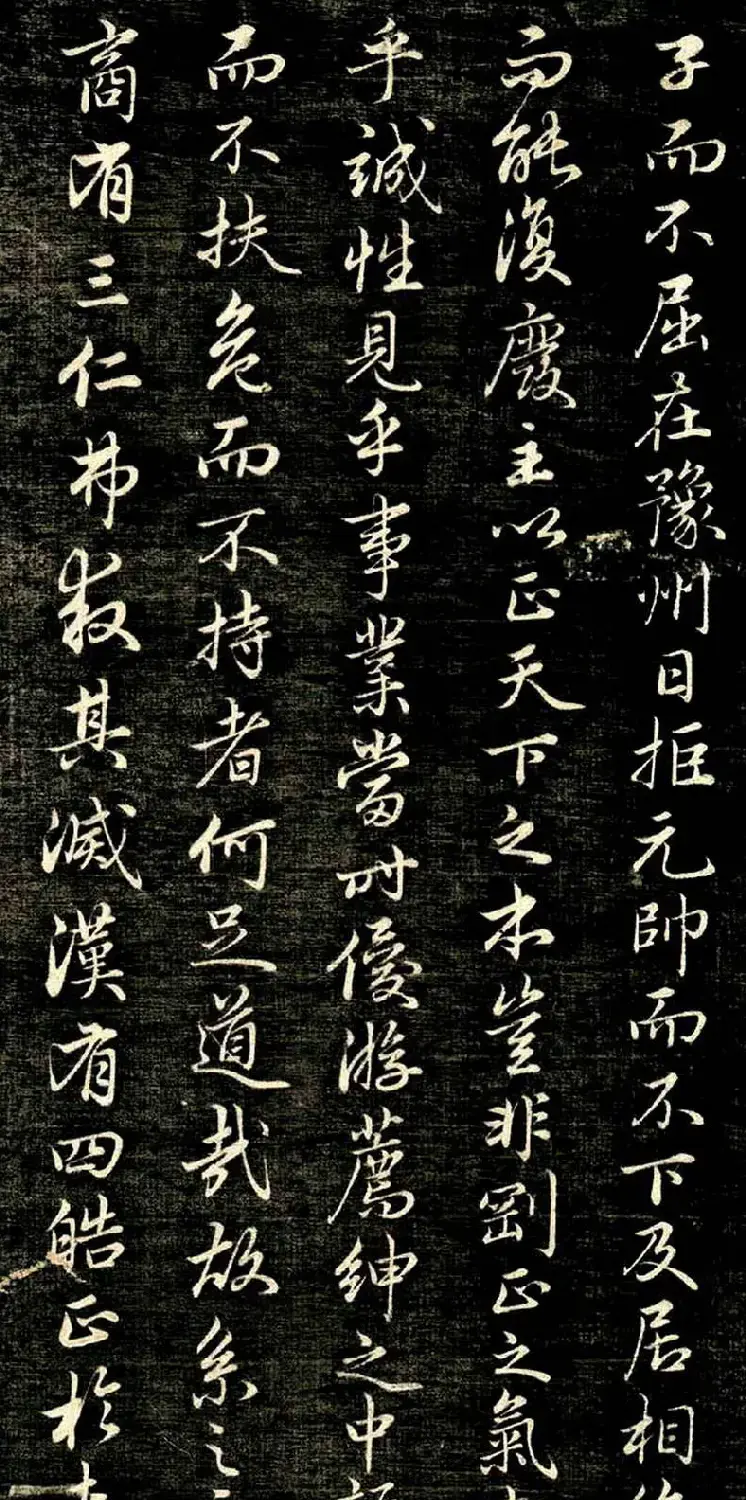 子而不屈在豫州日拒元帥而不下及居相
而能復廢主以正天下之本豈非剛正之氣
乎誠性見乎事業當時優游薦紳之中
而不扶危而不持者何足道哉故系之
商有三仁弗救其滅漢有四皓正於